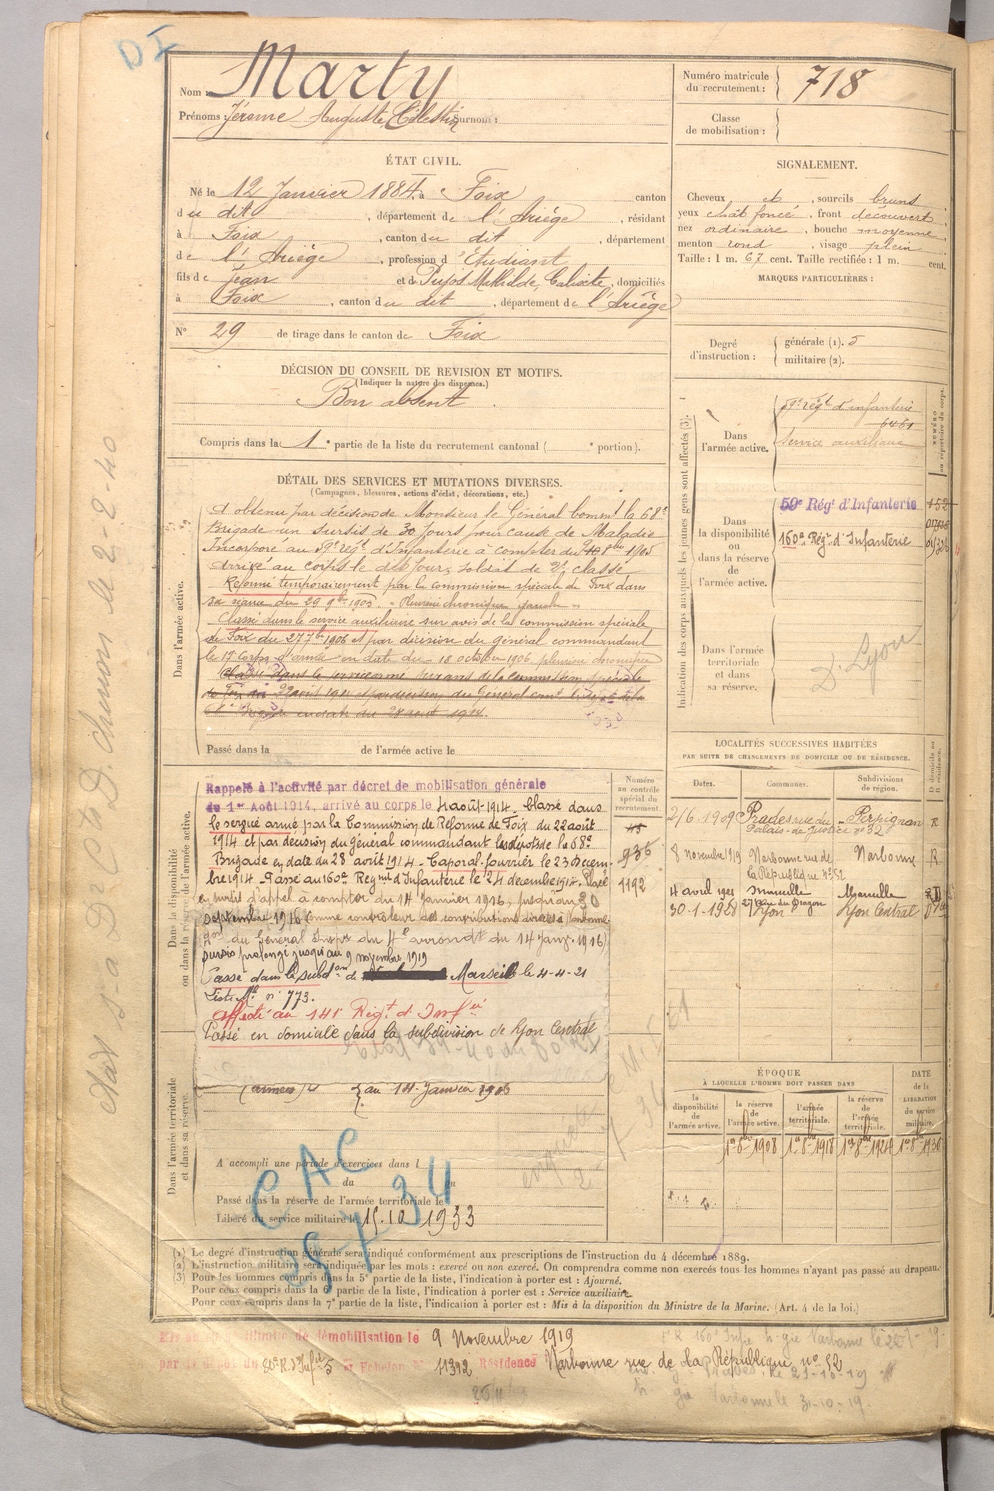 D I
Nom : Marty
Prénoms : Jérome Auguste, Célestin Surnoms :
Numéro matricule du recrutement : 718
Classe de mobilisation :
ÉTAT CIVIL.
Né le 12 Janvier 1884, à Foix canton
du dit , département de l'Ariège , résidant
à Foix , canton du dit , département
de l'Ariège , profession d'Etudiant
fils de Jean et de Pujos Mathilde, Calixte, domiciliés
à Foix , canton du dit , département de l'Ariège
N° 29 de tirage dans le canton de Foix
SIGNALEMENT.
Cheveux ch , sourcils bruns
yeux chat foncé , front découvert
nez ordinaire , bouche moyenne
menton rond , visage plein
Taille : 1 m. 67 cent. Taille rectifiée : 1 m. cent.
MARQUES PARTICULIÈRES :
Degré d'instruction : générale (1). 5
militaire (2).
DÉCISION DU CONSEIL DE REVISION ET MOTIFS.
(Indiquer la nature des dispenses.)
Bon absent
Compris dans la 1e partie de la liste du recrutement cantonal ( e portion).
DÉTAIL DES SERVICES ET MUTATIONS DIVERSES.
(Campagnes, blessures, actions d'éclat, décorations, etc.)
Dans l'armée active.
A obtenu par décision de Monsieur le Général commt la 68e
Brigade un sursis de 30 jours pour cause de Maladie
Incorporé au 59e régt d'Infanterie à compter du 8bre 1905
Arrivé au corps le dit jour, soldat de 2e classe
Réformé temporairement par la commission spéciale de Foix dans
sa séance du 29 9bre 1905. "Pleurésie chronique gauche"
Classé dans le service auxiliaire sur avis de la commission spéciale
de Foix du 27 7bre 1906 et par décision du général commandant
le 17e corps d'armée en date du 18 octobre 1906 pleurésie chronique
Classé dans le service armé sur avis de la commission spéciale
de Foix du 22 août 1914 et par décision du Général comt
68e Brigade en date du 28 août 1914.
Passé dans la de l'armée active le
Dans la disponibilité ou dans la réserve de l'armée active.
Rappelé à l'activité par décret de mobilisation générale
du 1er Août 1914, arrivé au corps le 4 août 1914. Classé dans
le service armé par la Commission de Réforme de Foix du 22 août
1914 et par décision du Général commandant les dépôts de la 68e
Brigade en date du 28 août 1914 - Caporal-fourrier le 23 Décem-
bre 1914. Passé au 160e Régmt d'Infanterie le 24 décembre 1914. Placé
en sursis d'appel à compter du 14 janvier 1916, jusqu'au 30
septembre 1916 comme contrôleur des contributions directes à Narbonne
du Général Inspr du 4e arrondt du 14 janv. 1916)
sursis prolongé jusqu'au 9 novembre 1919
Passé dans la subdon de Marseille le 4-4-21
Liste Mle n° 773.
affecté au 141e Régt d'Infie
Passé en domicile dans la subdivision de Lyon Central
Numéro au contrôle spécial du recrutement
936
1192
Dans l'armée territoriale et dans sa réserve.
au 14 Janvier 1906
A accompli une période d'exercices dans l
du au
Passé dans la réserve de l'armée territoriale le
Libéré du service militaire le 15.10.1933
CAC
28-7-34
Indication des corps auxquels les jeunes gens sont affectés (3).
NUMÉRO au répertoire du corps.
Dans l'armée active.
59e régt d'infanterie
6461
Service auxiliaire
Dans la disponibilité ou dans la réserve de l'armée active.
59e Régt d'Infanterie
160e Régt d'Infanterie
Dans l'armée territoriale et dans sa réserve.
D. Lyon
LOCALITÉS SUCCESSIVES HABITÉES
PAR SUITE DE CHANGEMENTS DE DOMICILE OU DE RÉSIDENCE.
Dates. Communes. Subdivisions de région. D domicile ou R résidence.
2/6 1909 Prades rue du Palais-de-Justice n° 32 Perpignan R
8 novembre 1919 Narbonne rue de la République n° 52 Narbonne R
4 avril 1921 Marseille 27 rue du Dragon Marseille
30-1-1928 Lyon Lyon Central
ÉPOQUE
À LAQUELLE L'HOMME DOIT PASSER DANS
la disponibilité de l'armée active.
la réserve de l'armée active.
l'armée territoriale.
la réserve de l'armée territoriale.
DATE de la LIBÉRATION du service militaire.
1er 8bre 1908 1er 8bre 1918 1er 8bre 1924 1er 8bre 1930
(1) Le degré d'instruction générale sera indiqué conformément aux prescriptions de l'instruction du 4 décembre 1889.
(2) L'instruction militaire sera indiquée par les mots : exercé ou non exercé. On comprendra comme non exercés tous les hommes n'ayant pas passé au drapeau.
(3) Pour les hommes compris dans la 5e partie de la liste, l'indication à porter est : Ajourné.
Pour ceux compris dans la 6e partie de la liste, l'indication à porter est : Service auxiliaire.
Pour ceux compris dans la 7e partie de la liste, l'indication à porter est : Mis à la disposition du Ministre de la Marine. (Art. 4 de la loi.)
de démobilisation le 9 Novembre 1919
par le dépôt du 80e R. d'Infie Echelon N° 5 11392 Résidence Narbonne rue de la République n° 52